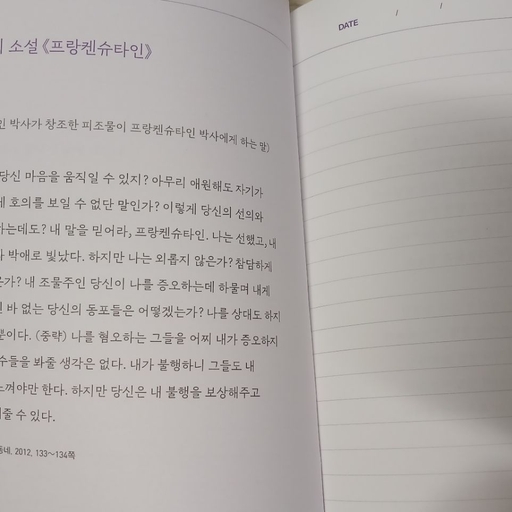 소설 《프랑켄슈타인》
인 박사가 창조한 피조물이 프랑켄슈타인 박사에게 하는 말)
당신 마음을 움직일 수 있지? 아무리 애원해도 자기가
호의를 보일 수 없단 말인가? 이렇게 당신의 선의와
하는데도? 내 말을 믿어라, 프랑켄슈타인. 나는 선했고, 내
박애로 빛났다. 하지만 나는 외롭지 않은가? 참담하게
은가? 내 조물주인 당신이 나를 증오하는데 하물며 내게
바 없는 당신의 동포들은 어떻겠는가? 나를 상대도 하지
뿐이다. (중략) 나를 혐오하는 그들을 어찌 내가 증오하지
수들을 봐줄 생각은 없다. 내가 불행하니 그들도 내
느껴야만 한다. 하지만 당신은 내 불행을 보상해주고
줄 수 있다.
동네, 2012, 133~134쪽
DATE / /